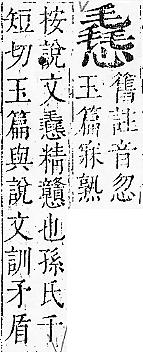 舊註音忽
玉篇寐熟
按說文精戇也孫氏千
短切玉篇與說文訓矛盾